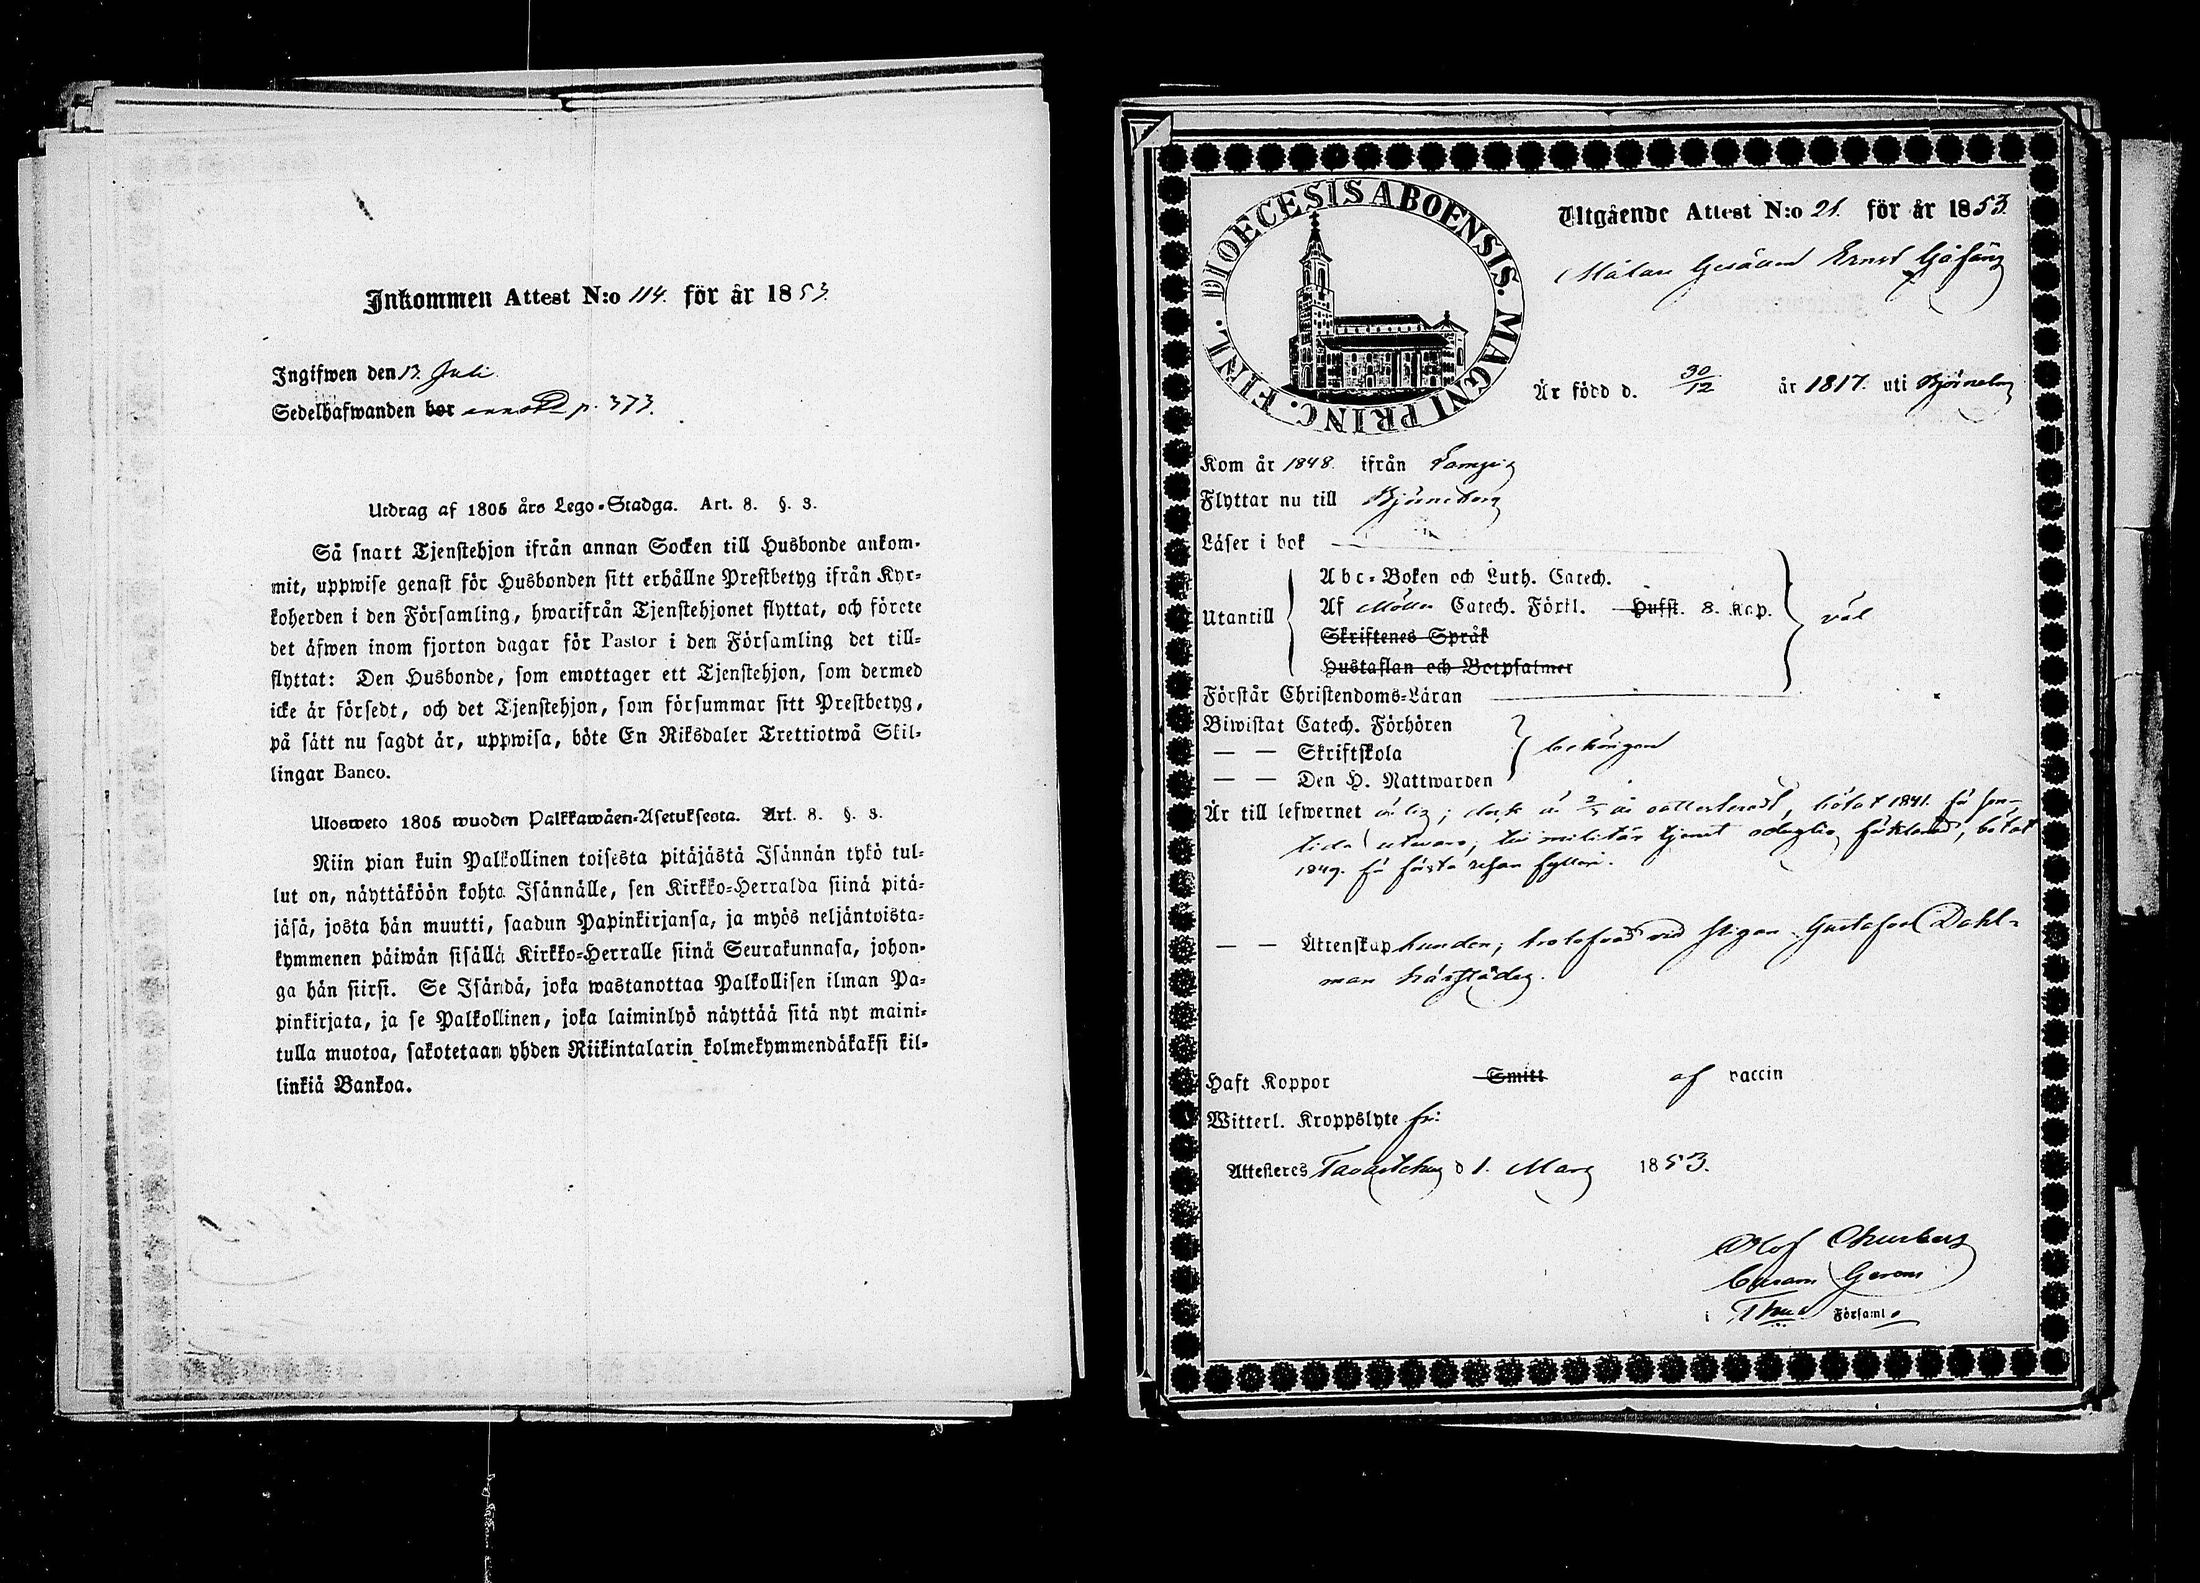 Inkommen Attest N:o 114. för år 1853.
Ingifwen den 13. Juli
Sedelhafwanden bor annoteradD p. 373.
Utdrag af 1805 års Lego-Stadga. Art. 8. §. 3.
Så snart Tjenstehjon ifrån annan Socken till Husbonde ankom-
mit, uppwise genast för Husbonden sitt erhållne Prestbetyg ifrån Kyr-
koherden i den Församling, hwarifrån Tjenstehjonet flyttat, och förete
det äfwen inom fjorton dagar för Pastor i den Församling det till-
flyttat: Den Husbonde, som emottager ett Tjenstehjon, som dermed
icke är försedt, och det Tjenstehjon, som försummar sitt Prestbetyg,
på sätt nu sagdt är, uppwisa, böte En Riksdaler Trettiotwå Skil-
lingar Banco.
Ulosweto 1805 wuoden Palkkawäen-Asetuksesta. Art. 8. §. 3.
Niin pian kuin Palkollinen toisesta pitäjästä Isännän tykö tul-
lut on, näyttäköön kohta Isännälle, sen Kirkko-Herralda siinä pitä-
jäsä, josta hän muutti, saadun Papinkirjansa, ja myös neljäntoista-
kymmenen päiwän sisällä Kirkko-Herralle siinä Seurakunnasa, johon-
ga hän siirsi. Se Isändä, joka wastanottaa Palkollisen ilman Pa-
pinkirjata, ja se Palkollinen, joka laiminlyö näyttää sitä nyt maini-
tulla muotoa, sakotetaan yhden Riikintalarin kolmekymmendäkaksi kil-
linkiä Bankoa.
DIOECESIS ABOENSIS. MAGNI PRINC. FINL.
Utgående Attest N:o 21. för år 1853.
Målare Gesällen Ernst
Är född d. 30/12 år 1817. uti Björneborg
Kom år 1848. ifrån
Flyttar nu till Björneborg
Läser i bok
Utantill
Abc-Boken och Luth. Catech.
Af Möllers Catech. Förkl. Hufst. 8. Kap.
Skriftenes Språk
Hustaflan och Botpsalmer
väl
Förstår Christendoms-Läran
Biwistat Catech. Förhören
— — Skriftskola
— — Den H. Nattwarden
behörigen
Är till lefwernet ärlig; dock är bötat 1841. för
till militär tjenst oduglig förklarad, bötat
1849. för första resan fylleri.
— — Ägtenskap hunden, trolofvad med pigan Gustafva Dahl-
man härstädes.
Haft Koppor Smitt af vaccin
Witterl. Kroppslyte fri:
Attesteras Tavastehus d 1. Mars 1853.
Olof
i Församl.